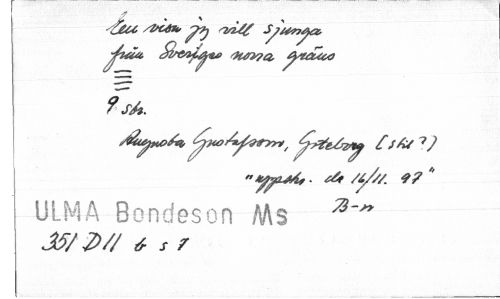 Een visa jag vill sjunga
från Sveriges norra gräns
9 str.
Gustafsson, Göteborg (stil?)
"uppskr. de 16/11. 97"
B-n
ULMA Bondeson Ms
351 D11 b s 7